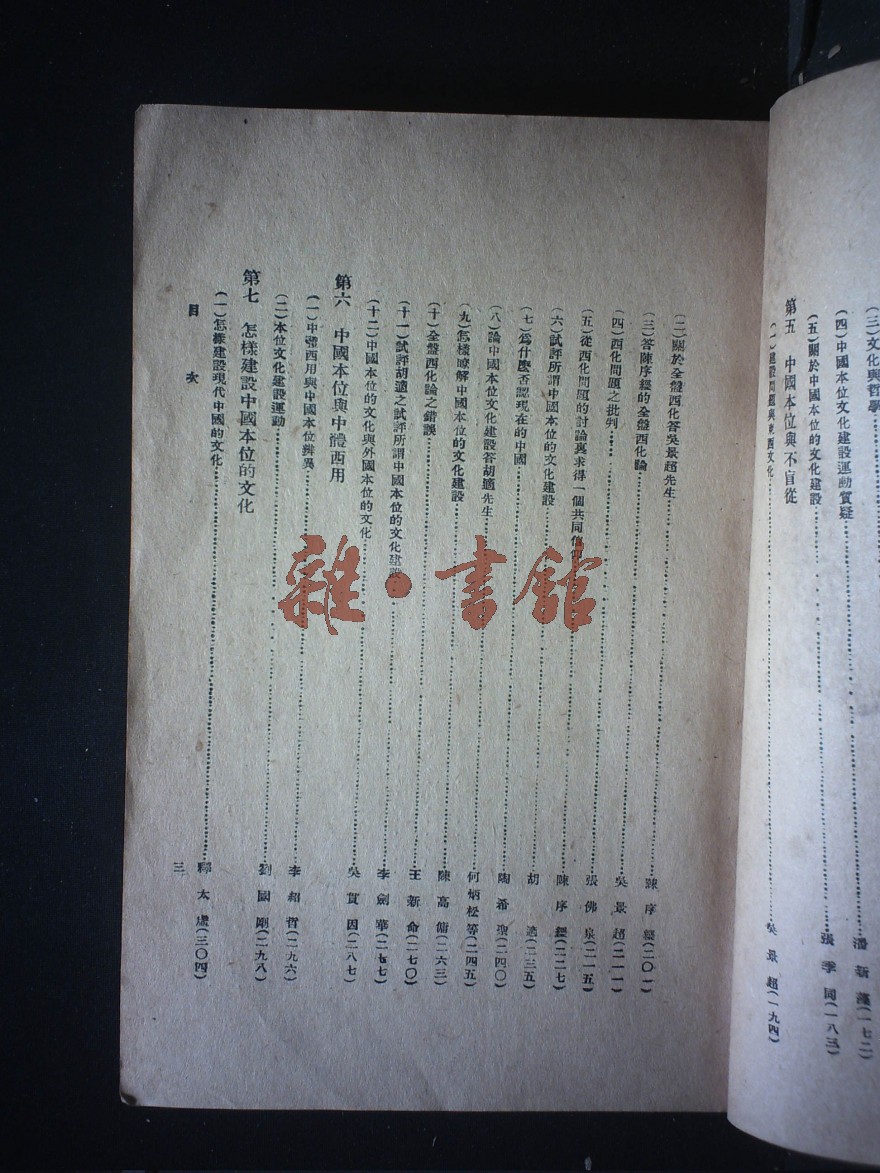 (三)文化與哲學……潘新藻(一七二)
(四)中國本位文化建設運動質疑
(五)關於中國本位的文化建設……張季同(一八三)
第五 中國本位與不盲從
(一)建設問題與東西文化……吳景超(一九四)
(二)關於全盤西化答吳景超先生……陳序經(二〇一)
(三)答陳序經的全盤西化論……吳景超(二一一)
(四)西化問題之批判……張佛泉(二一五)
(五)從西化問題的討論裏求得一個共同信仰……陳序經(二二七)
(六)試評所謂中國本位的文化建設……胡適(二三五)
(七)爲什麼否認現在的中國……陶希聖(二四〇)
(八)論中國本位文化建設答胡適先生……何炳松等(二四五)
(九)怎樣瞭解中國本位的文化建設……陳高傭(二六三)
(十)全盤西化論之錯誤……王新命(二七〇)
(十一)試評胡適之試評所謂中國本位的文化建設……李劍華(二七七)
(十二)中國本位的文化與外國本位的文化……吳貫因(二八七)
第六 中國本位與中體西用
(一)中體西用與中國本位辨異……李紹哲(二九六)
(二)本位文化建設運動……劉國剛(二九八)
第七 怎樣建設中國本位的文化
(一)怎樣建設現代中國的文化……釋太虛(三〇四)
目次
三
雜·書館